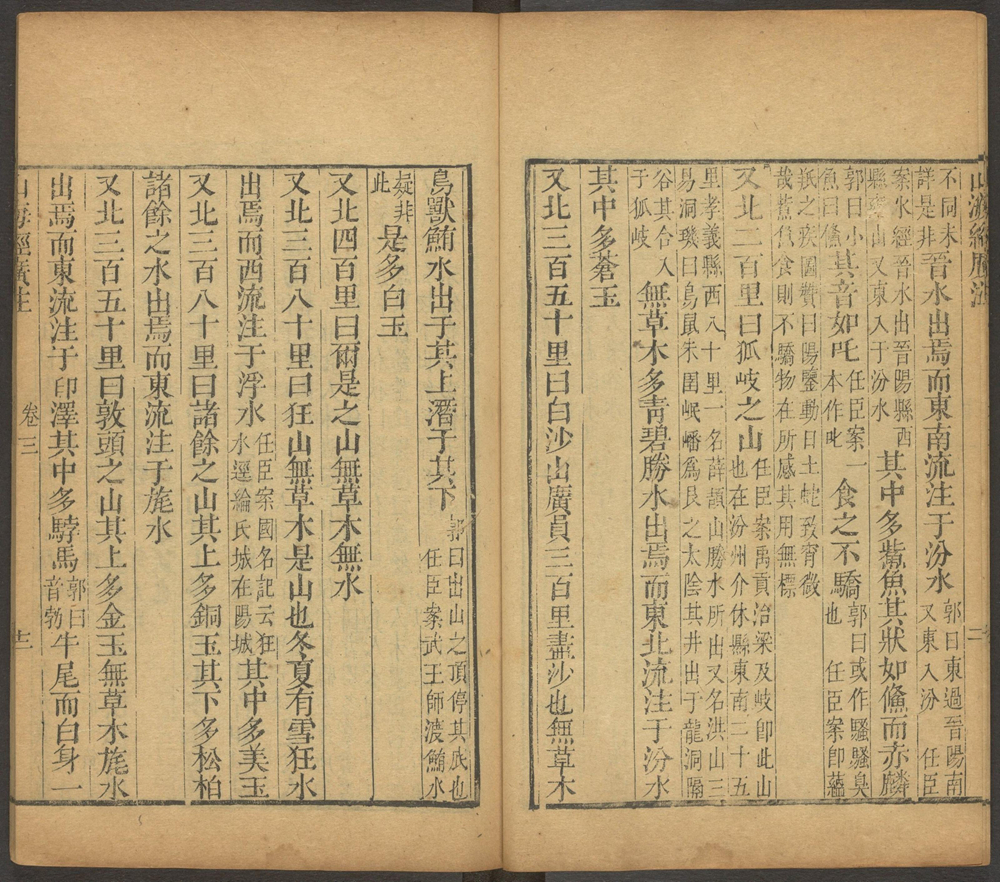 山海經廣注
二
不同未詳是非晉水出焉而東南流注于汾水郭曰東過晉陽南又東入汾 任臣
案水經晉水出晉陽縣西縣甕山又東入于汾水其中多鮆魚其狀如儵而赤麟
郭曰小魚曰儵其音如吒任臣案一本作叱食之不驕郭曰或作騷騷臭也 任臣案即蘊
羝之疾圖贊曰陽鑒動日土蛇致宵微哉鮆魚食則不驕物在所感其用無標
又北二百里曰狐岐之山任臣案禹貢治梁及岐即此山也在汾州介休縣東南二十五
里孝義縣西八十里一名薛頡山勝水所出又名洪山三易洞璣曰鳥鼠朱圉岷嶓爲艮之太陰其井出于龍洞隔
谷其合入于狐岐無草木多青碧勝水出焉而東北流注于汾水
其中多蒼玉
又北三百五十里曰白沙山廣員三百里盡沙也無草木
鳥獸鮪水出于其上潛于其下郭曰出山之頂停其底也 任臣案武王師渡鮪水
疑非此是多白玉
又北四百里曰爾是之山無草木無水
又北三百八十里曰狂山無草木是山也冬夏有雪狂水
出焉而西流注于浮水任臣案國名記云狂水逕綸氏城在陽城其中多美玉
又北三百八十里曰諸餘之山其上多銅玉其下多松柏
諸餘之水出焉而東流注于旄水
又北三百五十里曰敦頭之山其上多金玉無草木旄水
出焉而東流注于印澤其中多䮀馬郭曰音勃牛尾而白身一
山海經廣注
卷三
十二